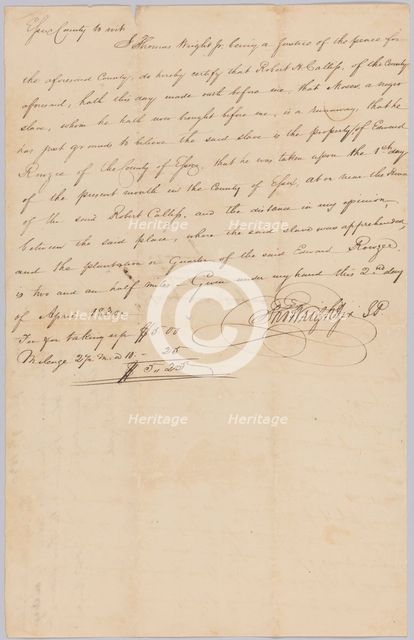 Essex County to wit
I Thomas Wright Jr. being a Justice of the peace for
the aforesaid County, do hereby certify that Robert H. Callis, of the County
aforesaid, hath this day made oath before me, that Moses, a negro
slave, whom he hath now brought before me, is a runaway, that he
has just grounds to believe the said slave is the property of Edward
Rouzee of the County of Essex, that he was taken upon the 1st day
of the present month in the County of Essex, at or near the House
of the said Robert Callis, and the distance in my opinion
between the said place, where the said slave was apprehended,
and the plantation or Quarter of the said Edward Rouzee
is two and an half miles - Given under my hand this 2nd day
of April 183
For taking up $5.00
Tho Wright Jr J.P.
Mileage 2½ m. @ 10. - 25
$5 " 25
Heritage
Heritage
Heritage
Heritage
Heritage
Heritage
Heritage
Heritage